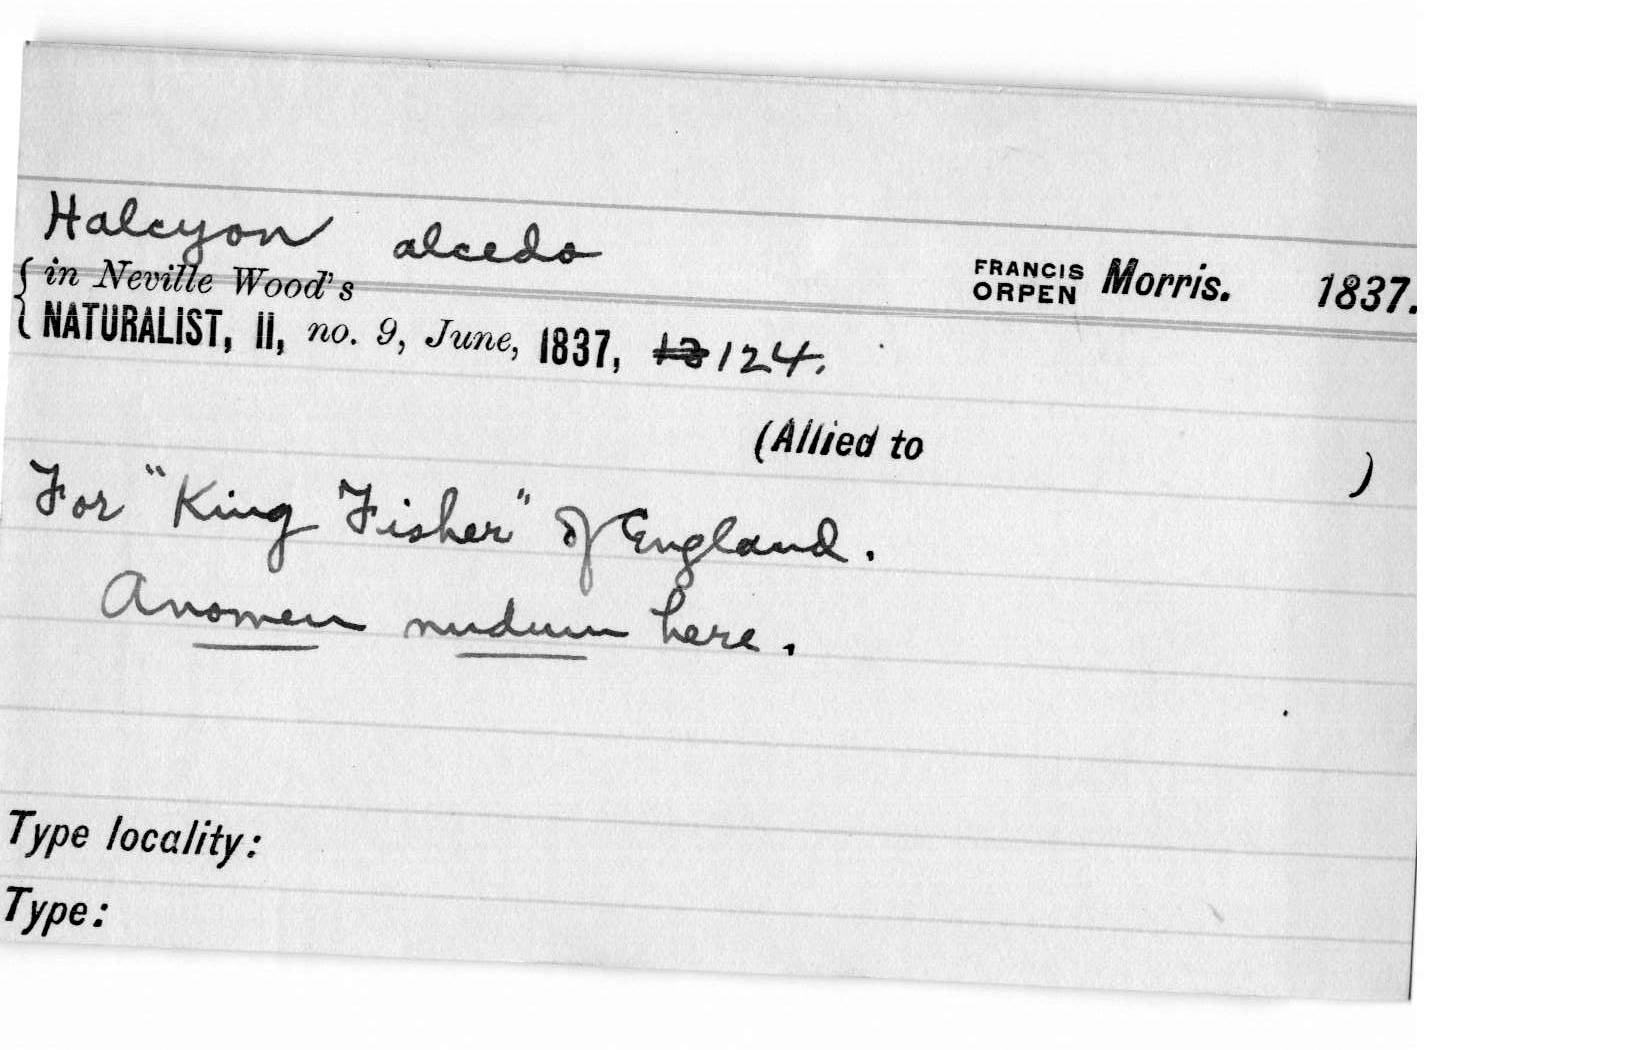 Halcyon alcedo
FRANCIS ORPEN Morris. 1837.
{ in Neville Wood's
NATURALIST, II, no. 9, June, 1837, 124.
(Allied to )
For "King Fisher" of England.
A nomen nudum here.
Type locality:
Type: